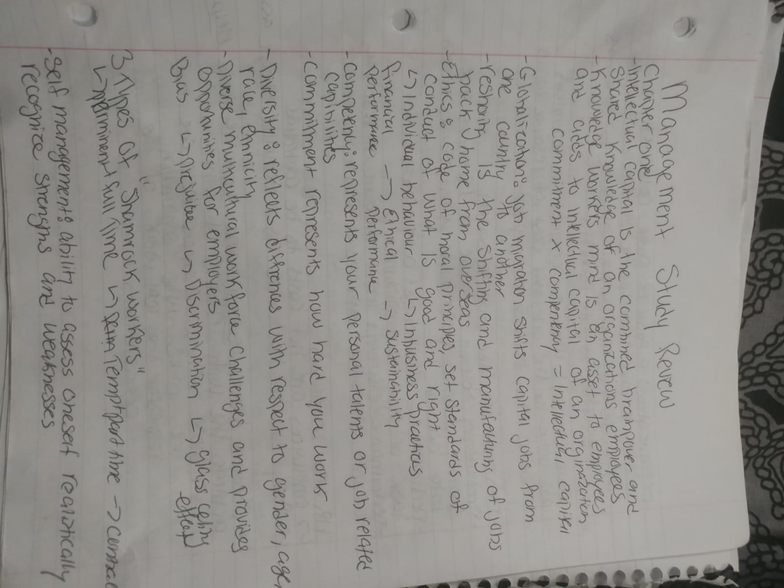 Management Study Review
Chapter one
-Intellectual capital is the combined brainpower and
shared knowledge of an organizations employees
-Knowledge workers mind is an asset to employees
and adds to intellectual capital of an orginazation
commitment x competency = Intellectual capital
-Globalization: job migration shifts capital jobs from
one country to another
-reshoring is the shifting and manufacturing of jobs
back home from overseas
-Ethics: code of moral principles, set standards of
conduct of what is good and right
↳ Individual behaviour ↳ Inbusiness practices
financial → Ethical → sustainability
performance performance
-competency: represents your personal talents or job related
capibilities
-commitment represents how hard you work
-Diversity: reflects differences with respect to gender, age,
race, ethnicity
-Diverse multicultural workforce challenges and provides
opportunities for employers
Bias ↳ prejudice ↳ Discrimination ↳ glass ceiling
effect
3 types of "Shamrock workers"
↳ permanent full time ↳ Temp part time →
-Self management: ability to assess oneself realistically
recognize strengths and weaknesses